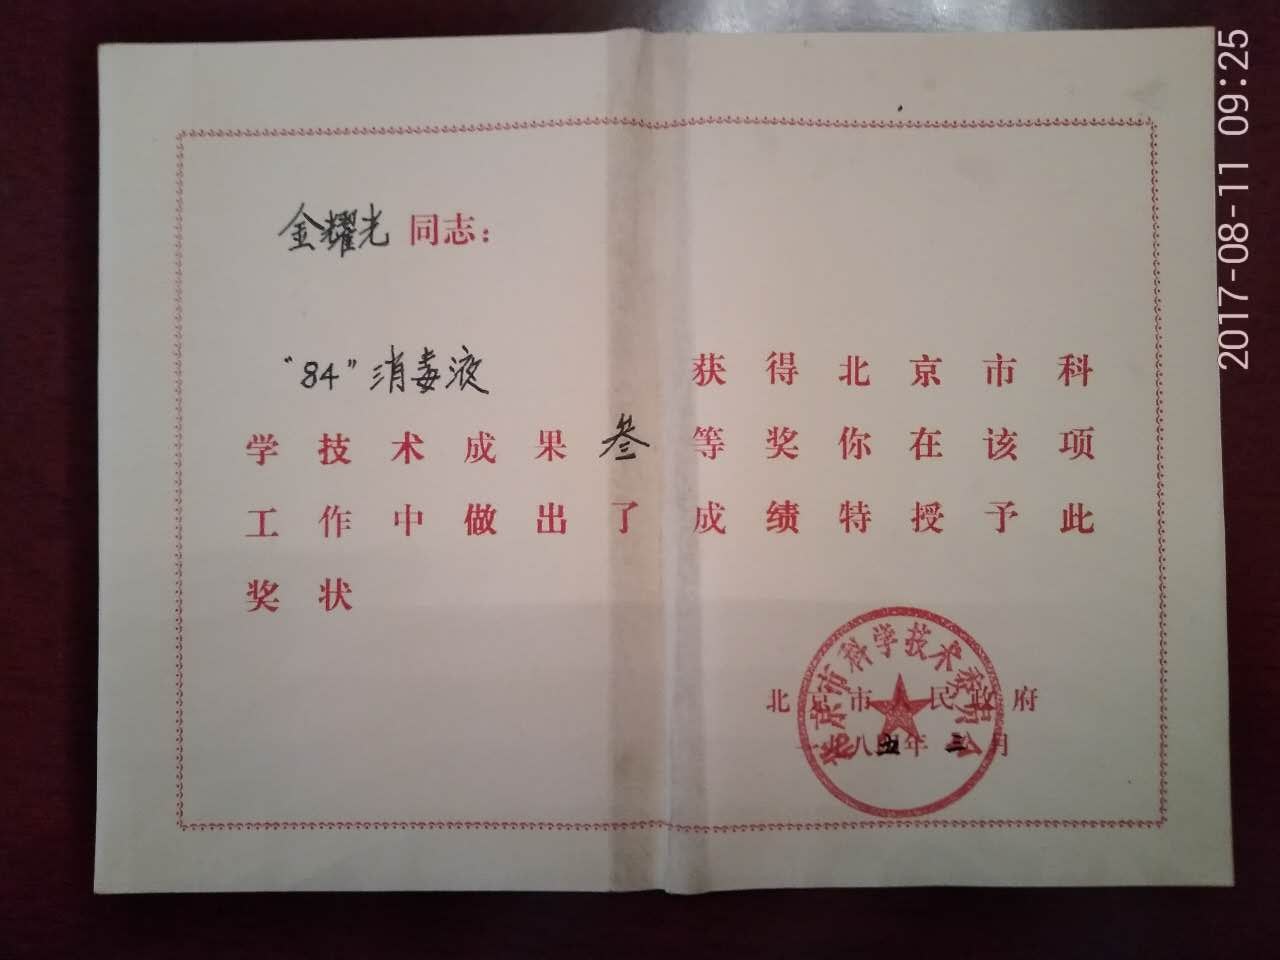 金耀光 同志：
“84”消毒液 获得北京市科
学技术成果叁等奖你在该项
工作中做出了成绩特授予此
奖状
北京市科学技术委员会
北京市人民政府
一九八五年三月
2017-08-11 09:25